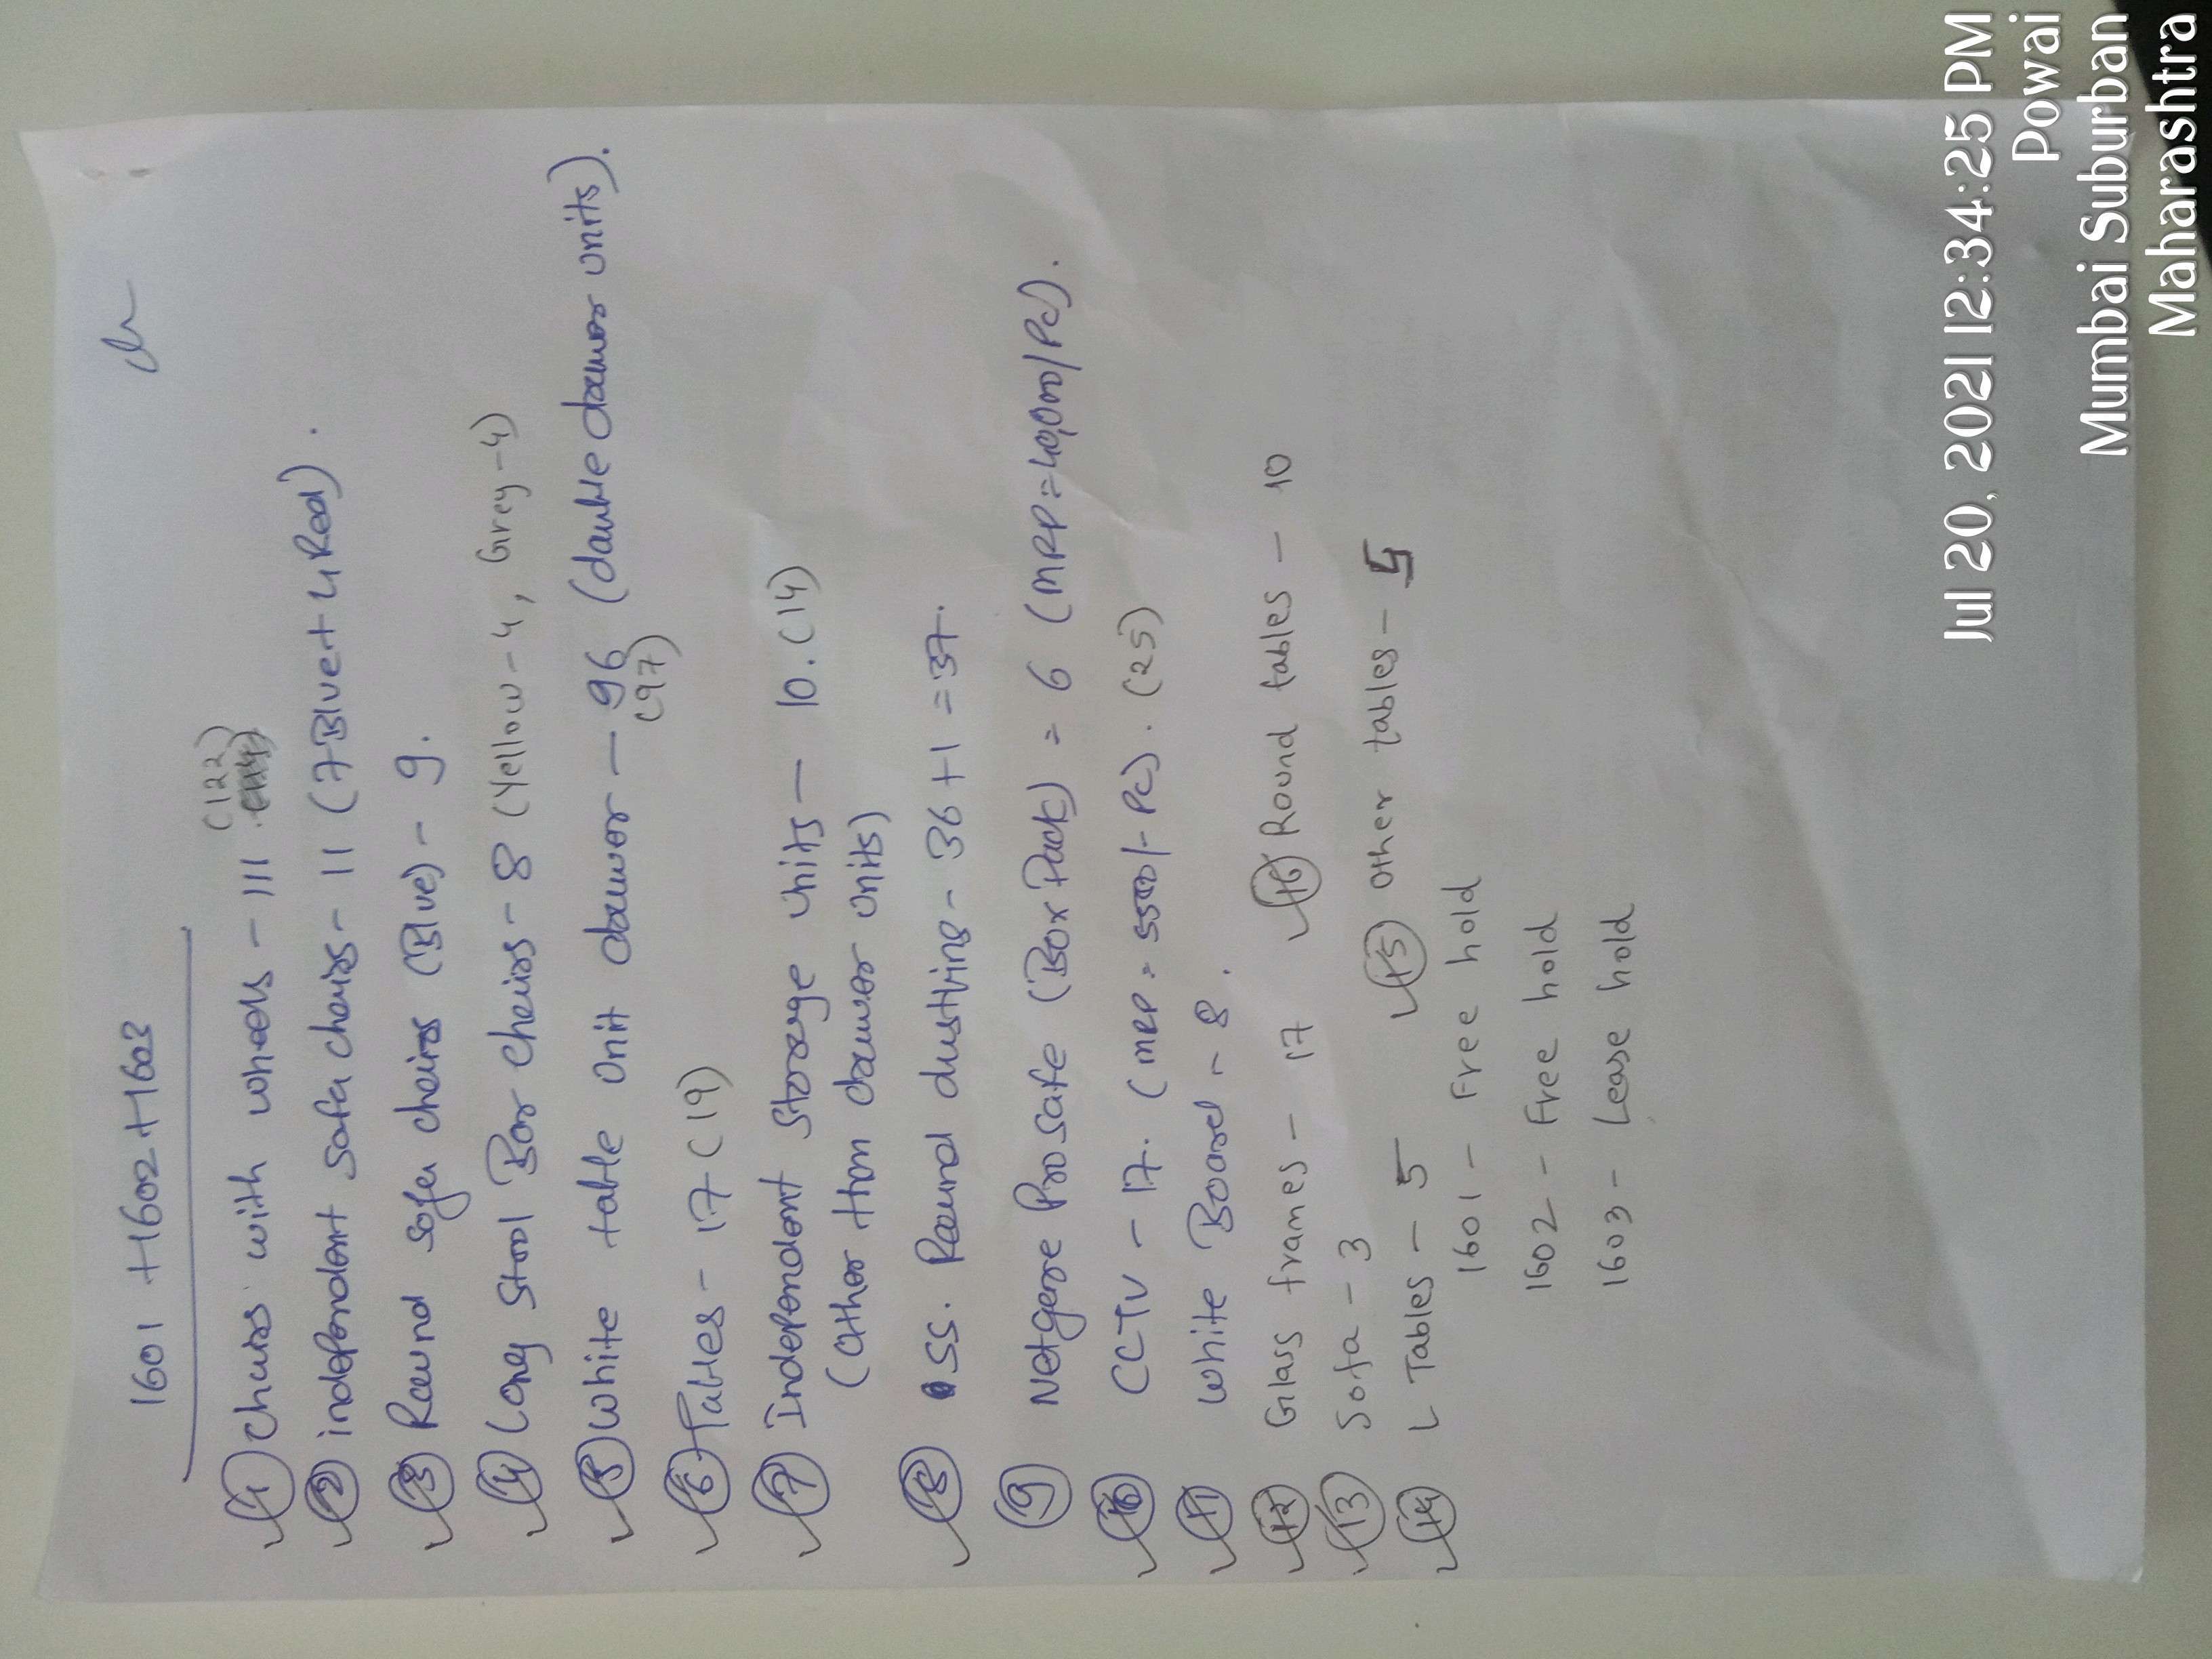 1601 + 1602 + 1603
1 chairs with wheels - 111 (122)
2 independent sofa chairs - 11 (7 Blue + 4 Red).
3 Round sofa chairs (Blue) - 9.
4 Long Stool Bar chairs - 8 (Yellow - 4, Grey - 4)
5 White table unit drawer - 96 (double drawer units).
(97)
6 Tables - 17 (19)
7 Independent Storage units - 10. (14)
(other than drawer units)
8 SS. Round dustbins - 36 + 1 = 37.
9 Netgere Prosafe (Box Pack) = 6 (MRP = 40,000/Pc).
10 CCTV - 17. (MRP = 5500/- Pc). (25)
11 White Board - 8.
12 Glass frames - 17 16 Round tables - 10
13 Sofa - 3
14 L Tables - 5 15 other tables - 5
1601 - Free hold
1602 - Free hold
1603 - Lease hold
Jul 20, 2021 12:34:25 PM
Powai
Mumbai Suburban
Maharashtra